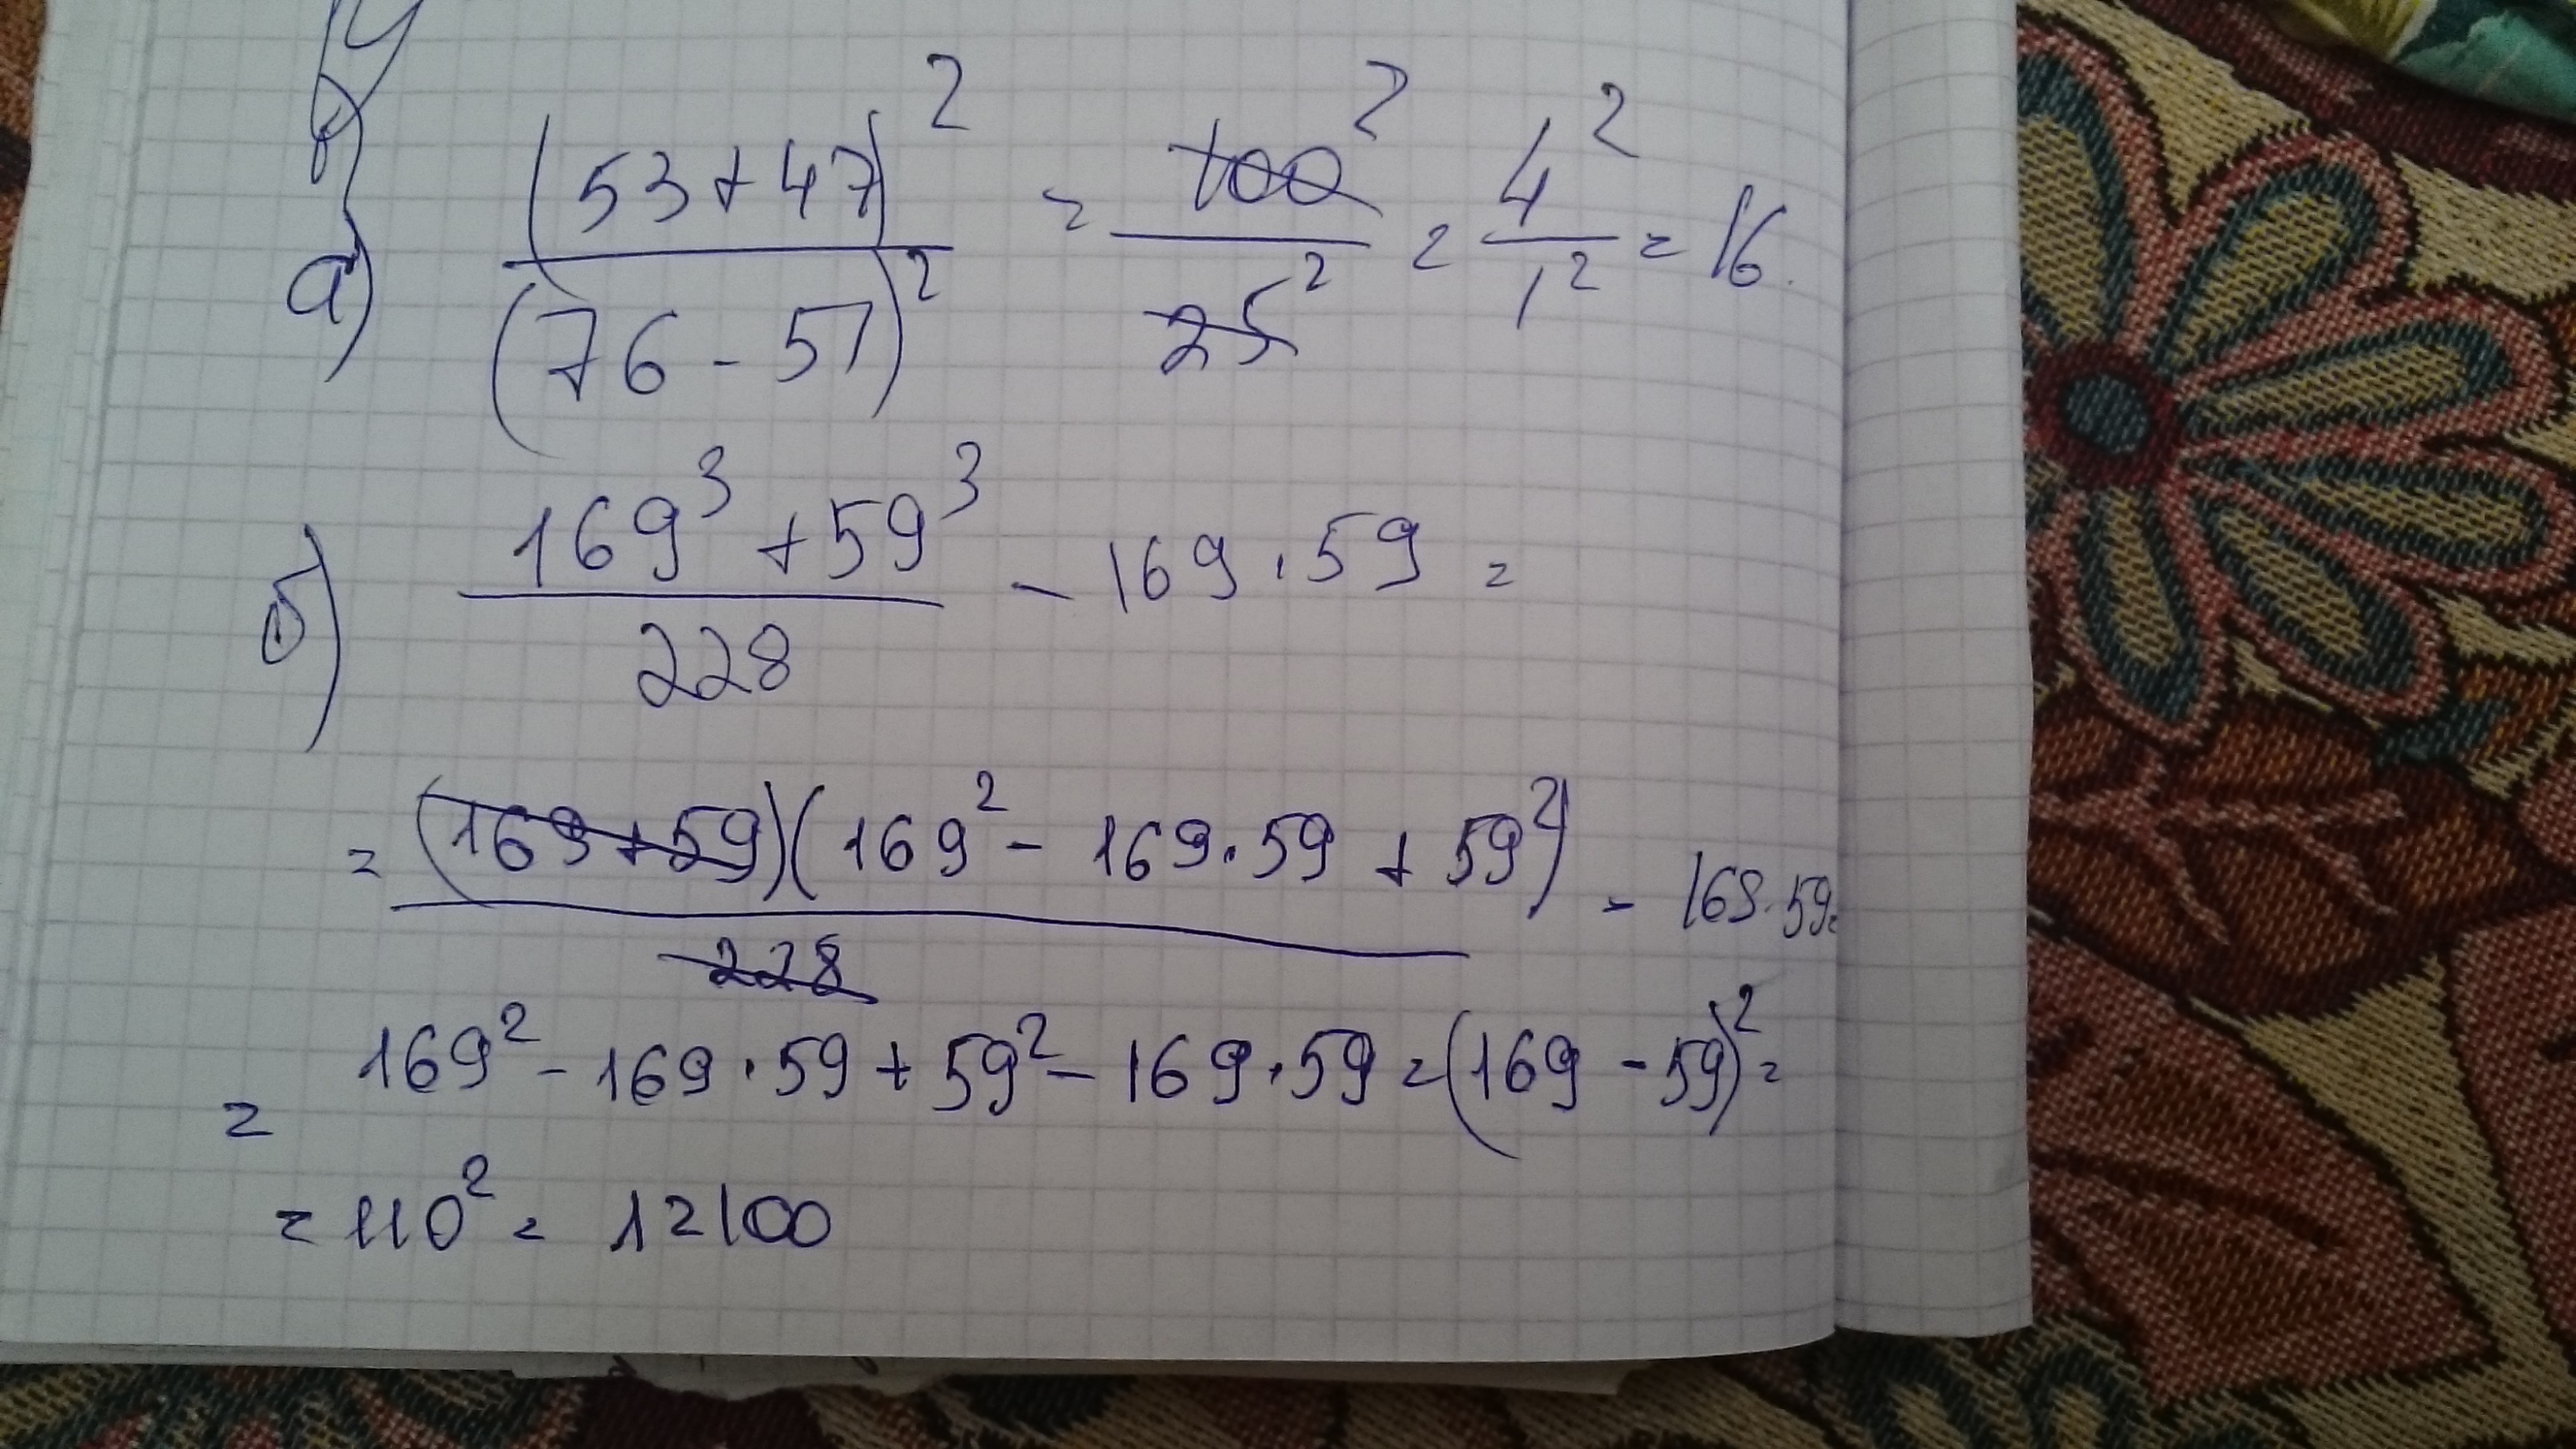 а) (53+47)² / (76-51)² = 100² / 25² = 4² / 1² = 16.
б) 169³ + 59³ / 228 - 169 · 59 =
= (169+59)(169² - 169·59 + 59²) / 228 - 169·59=
= 169² - 169·59 + 59² - 169·59 = (169 - 59)² =
= 110² = 12100